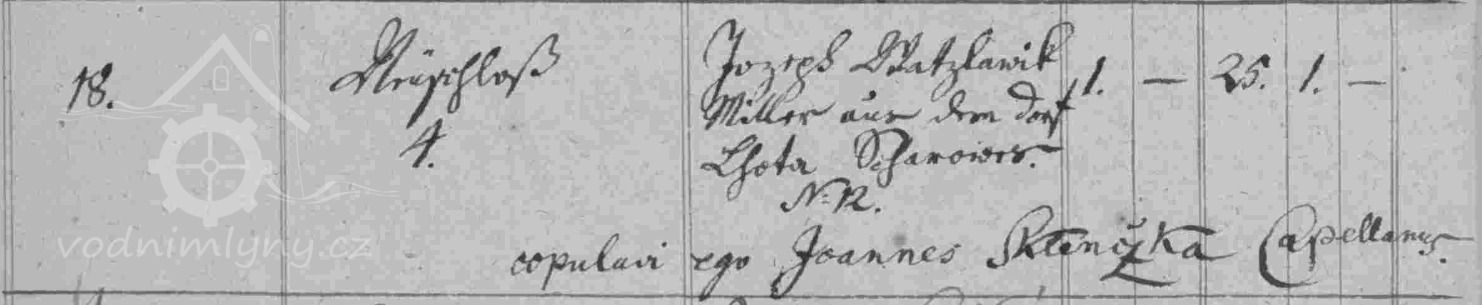 18.
Neuschloß
4.
Jozeph Watzlawik
Miller aus dem Dorf
Lhota Scharowes.
N: 12.
1. — 25. 1. —
copulavi ego Joannes Capellanus.
vodnimlyny.cz